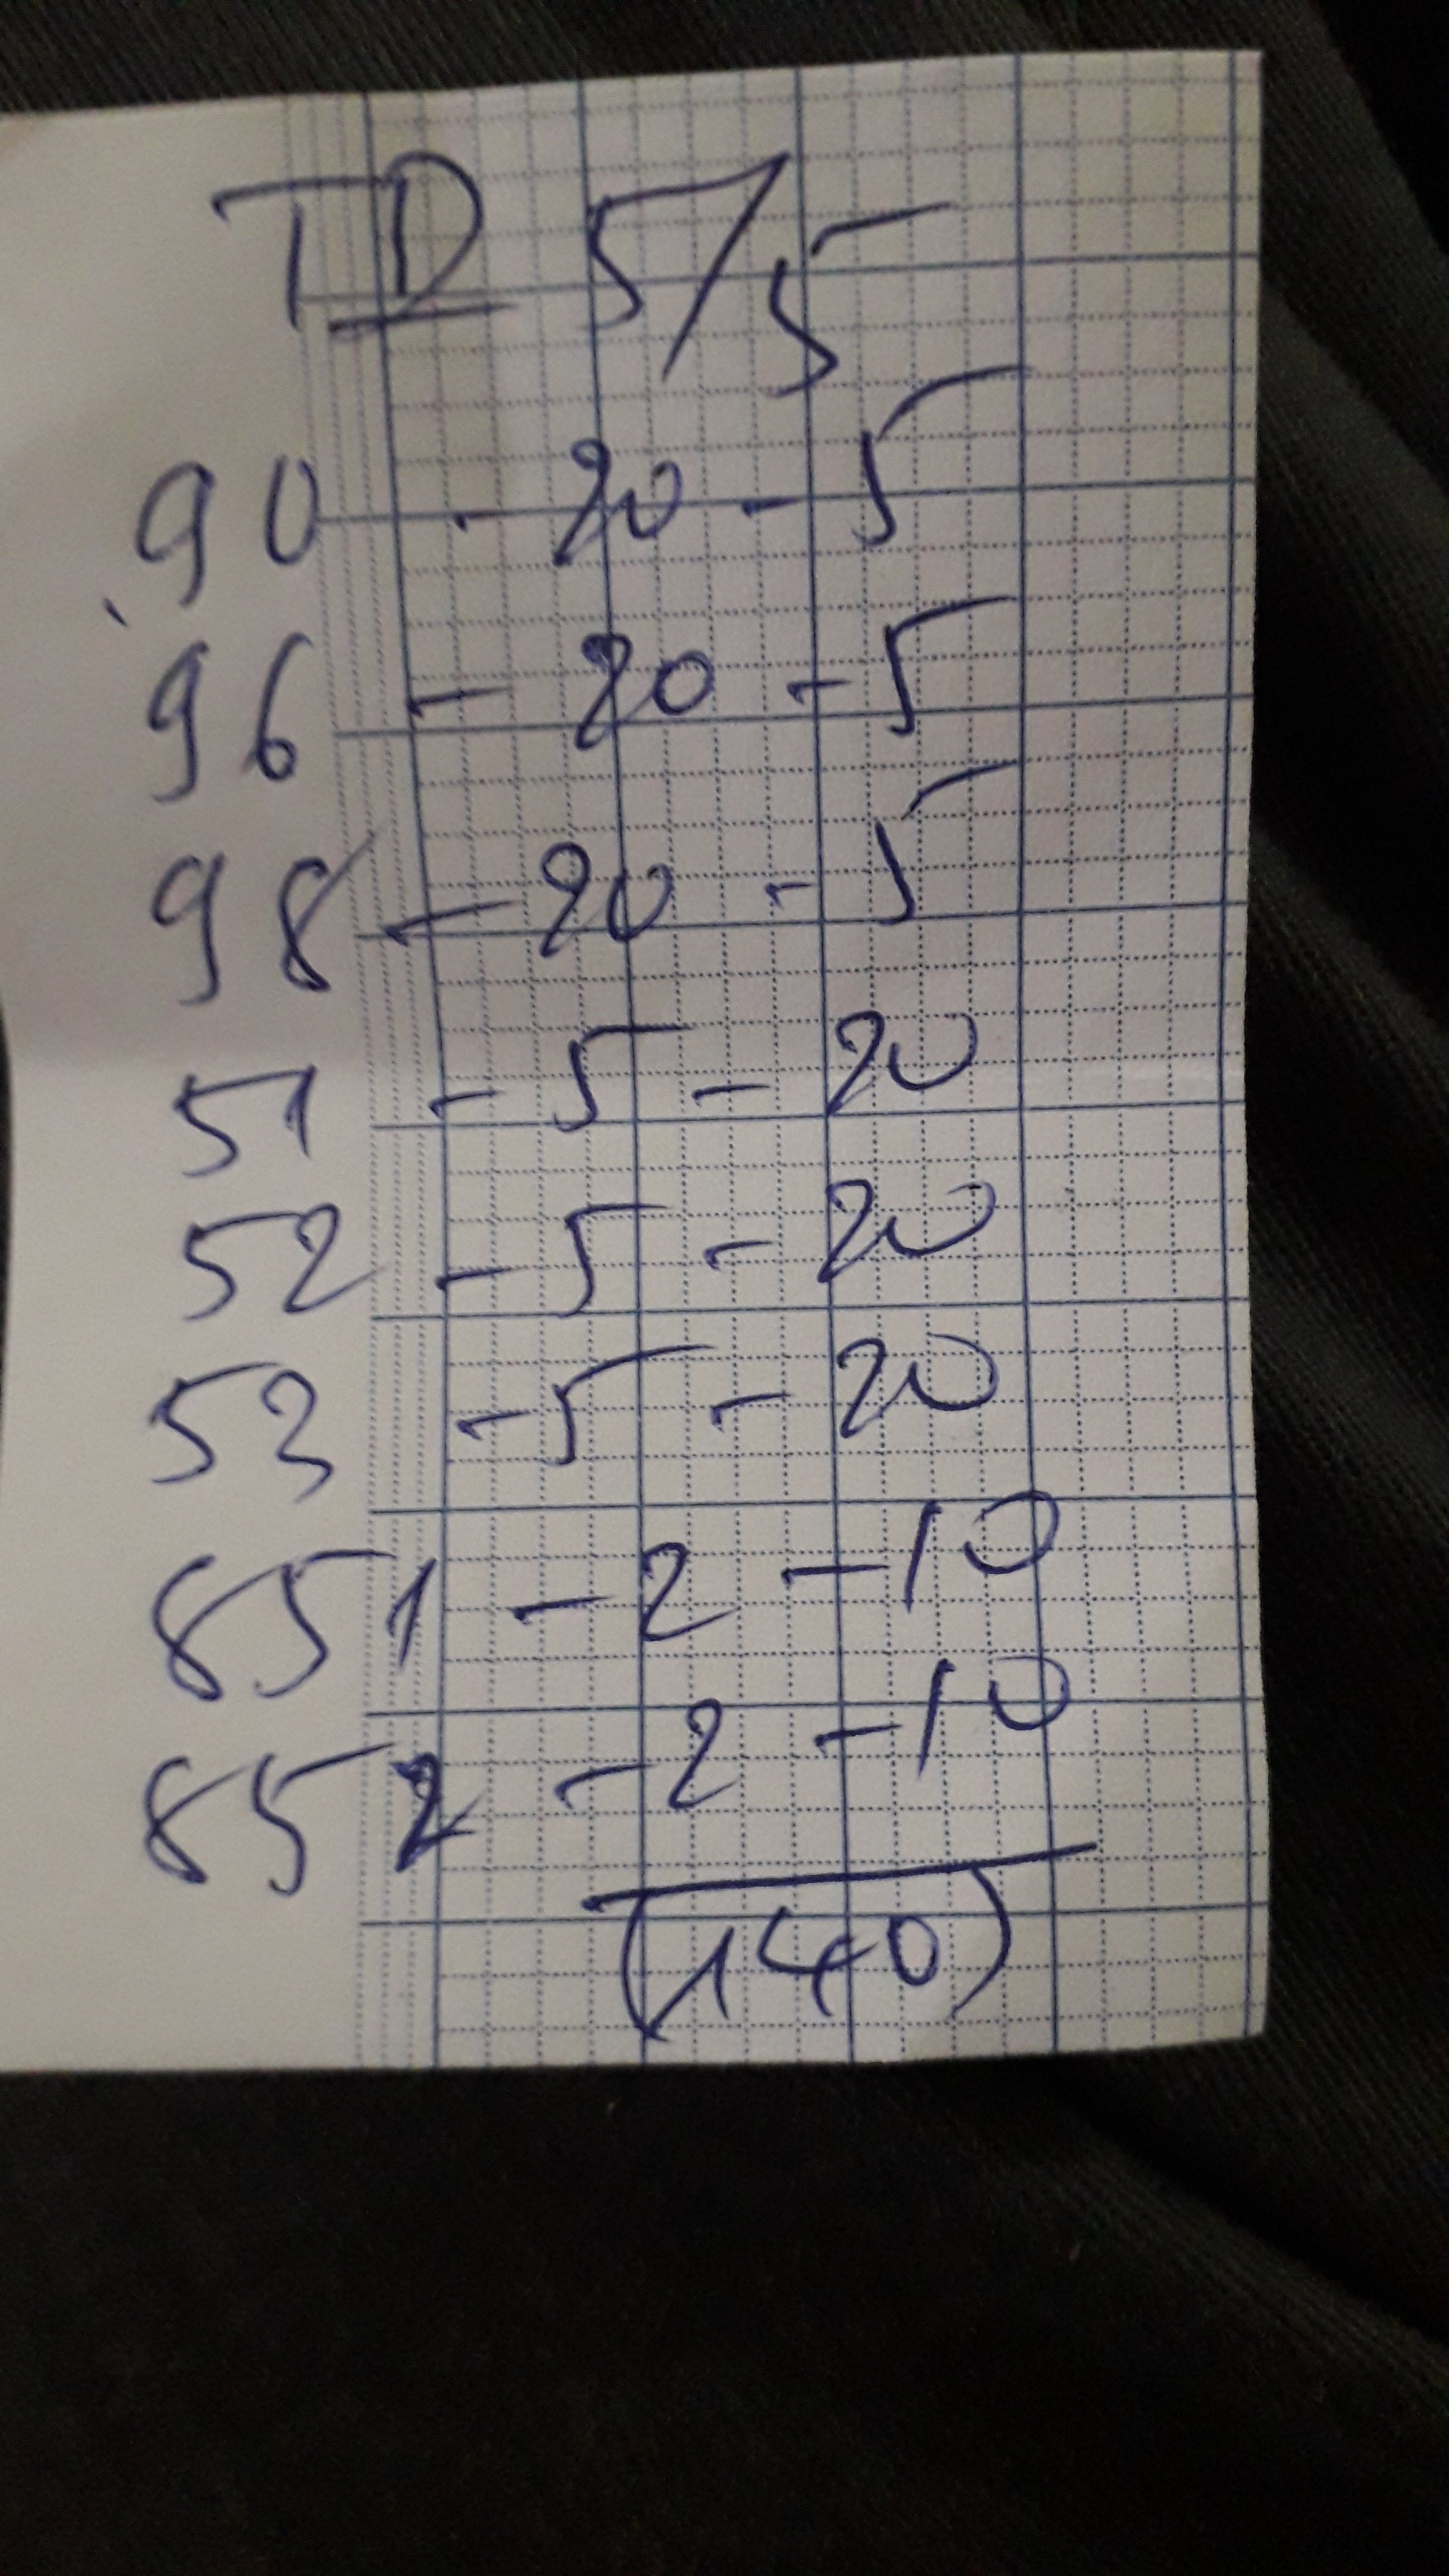 TD 5/5
90 - 20 - 5
96 - 20 - 5
98 - 20 - 5
51 - 5 - 20
52 - 5 - 20
53 - 5 - 20
851 - 2 - 10
852 - 2 - 10
(140)